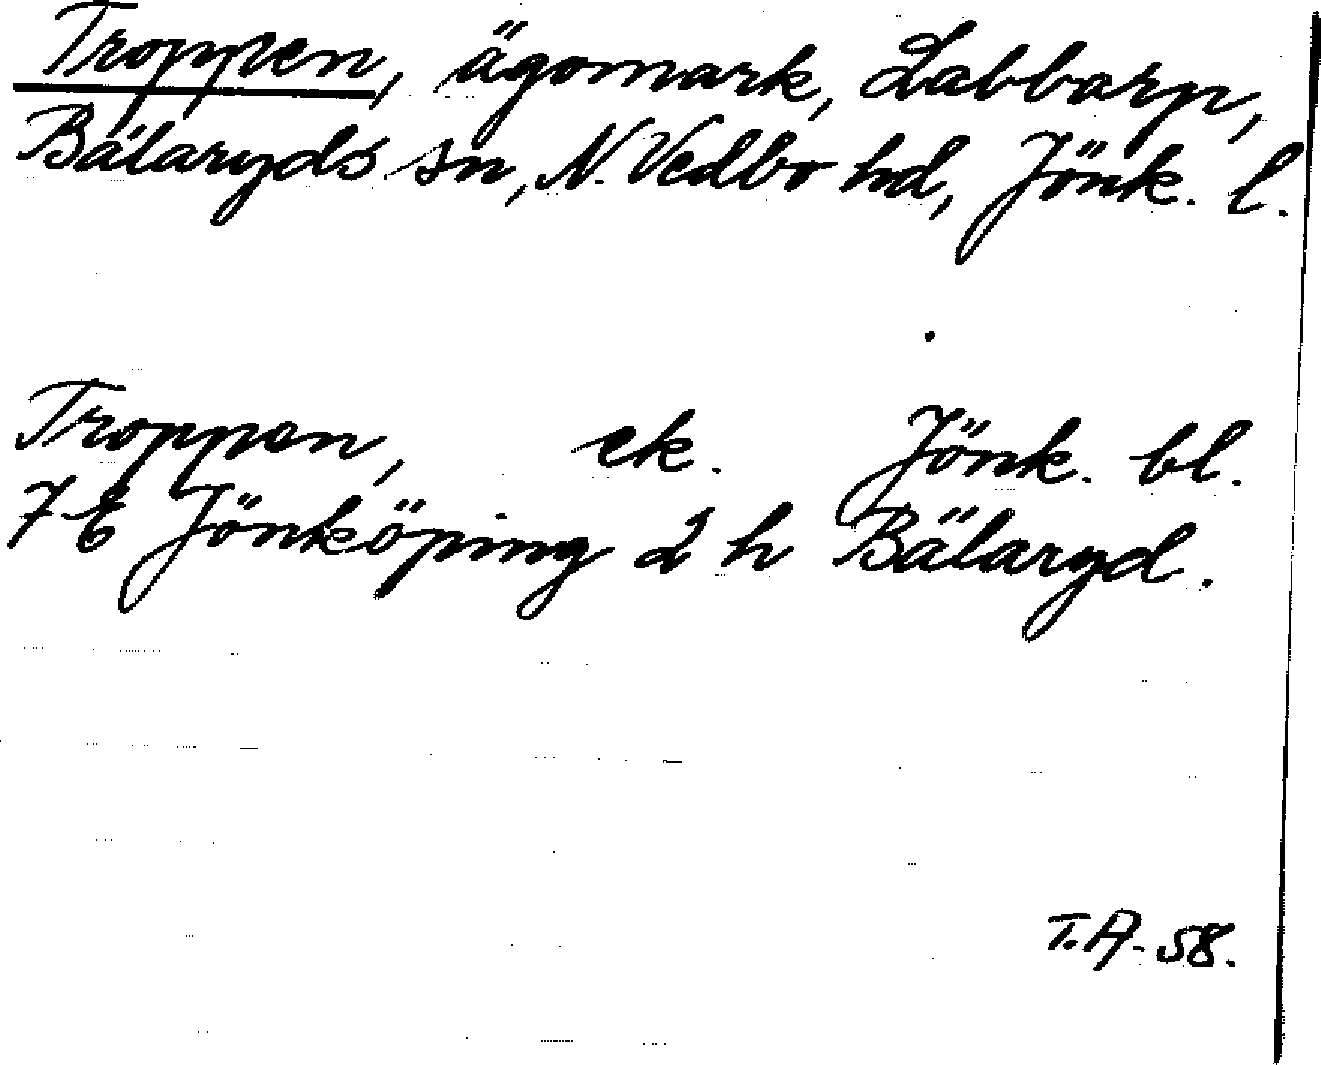 Troppen, ägomark, Labbarp,
Bälaryds sn, N. Vedbo hd, Jönk. l.
Troppen, ek. Jönk. bl.
7 E Jönköping 2 h Bälaryd.
T.A. 58.